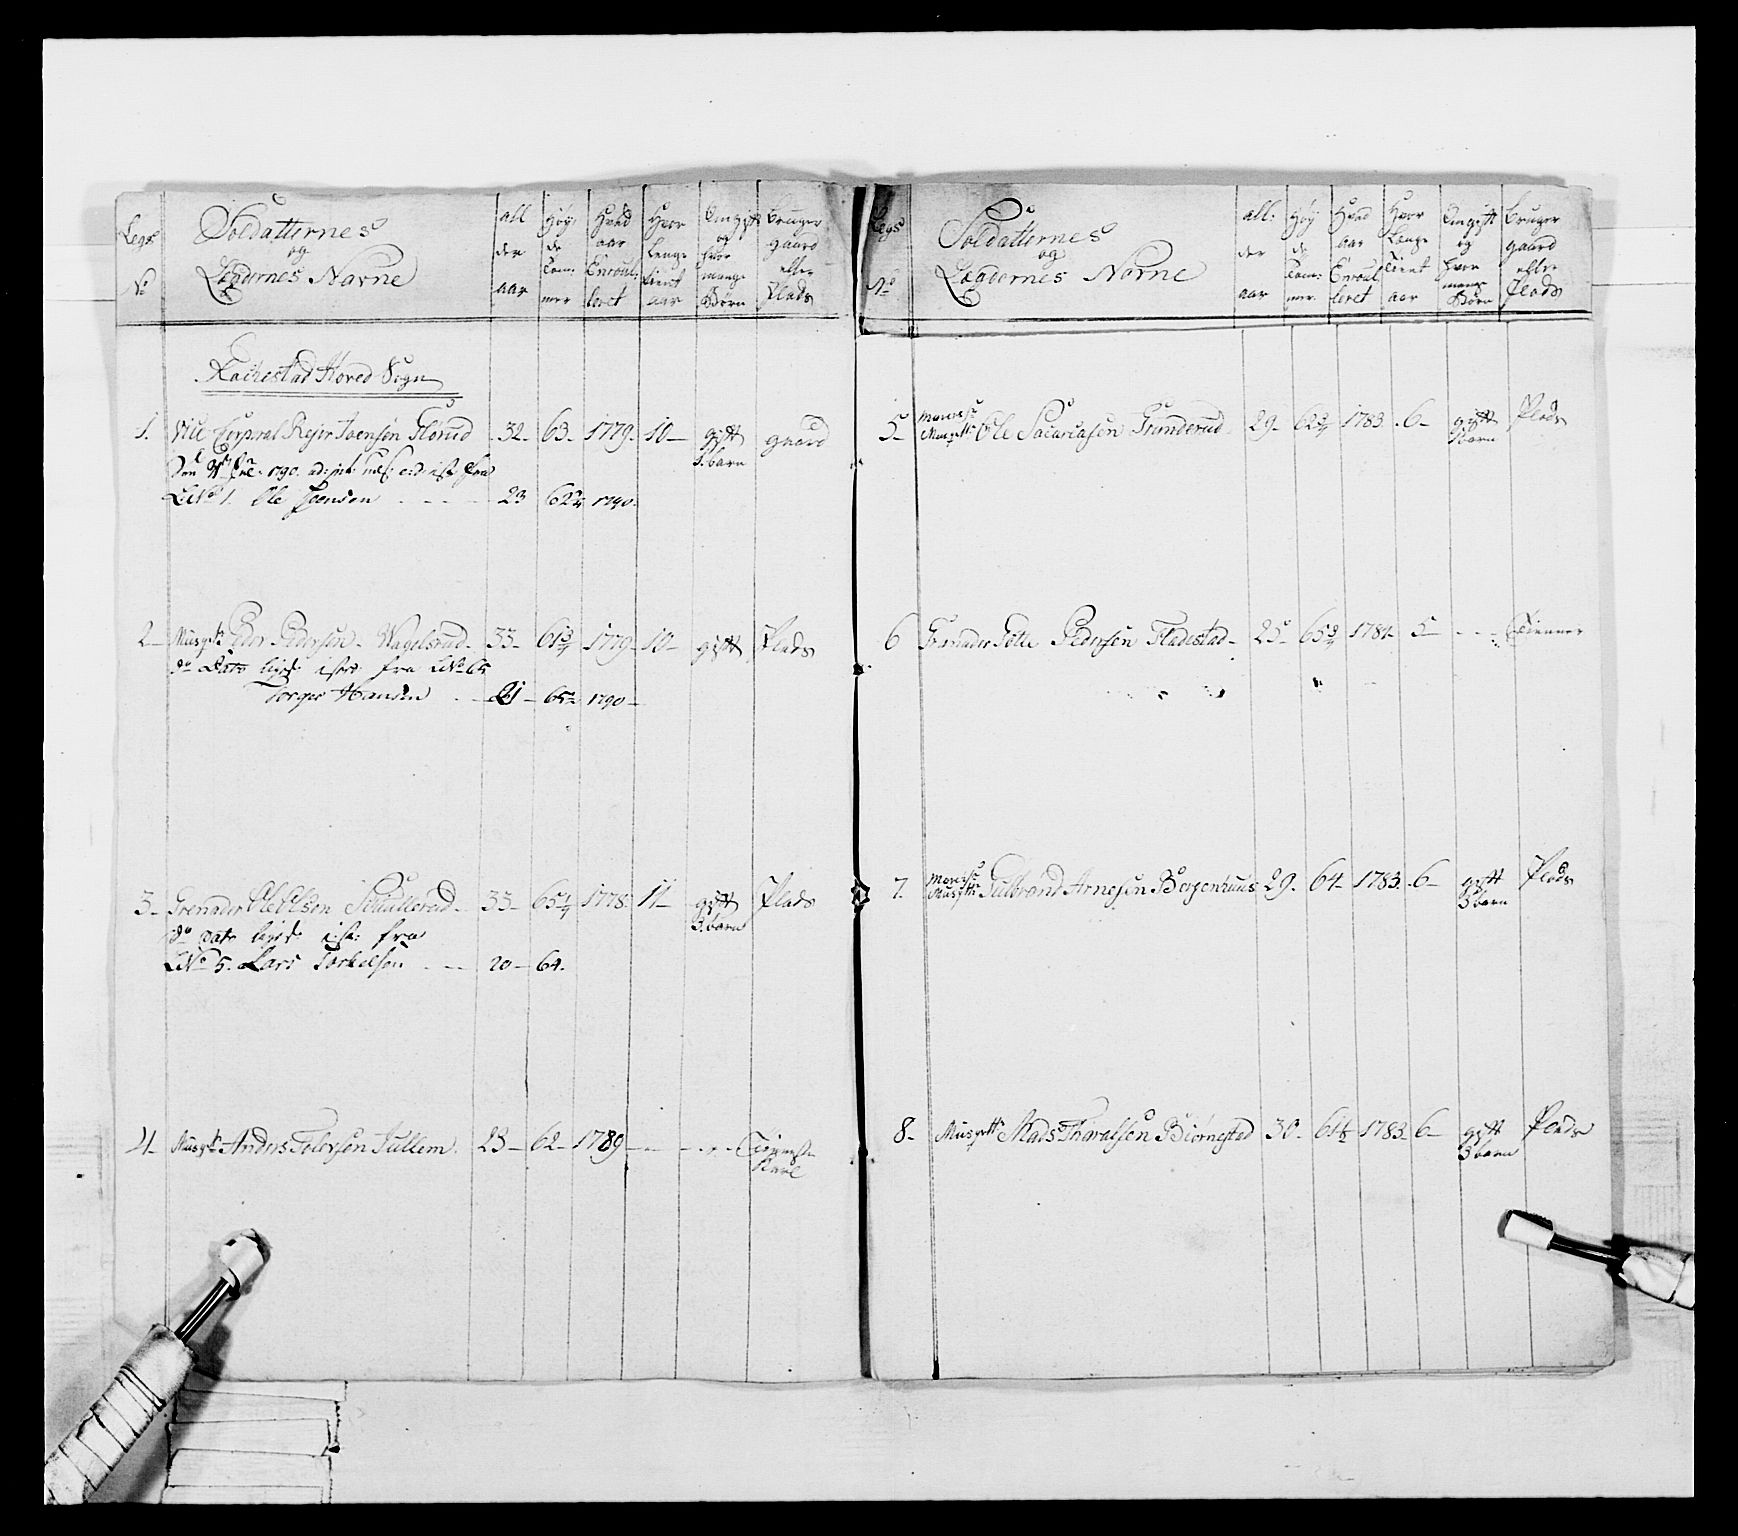 Legs
No
Soldatternes
og
Lægdernes Navne
all
der
aar
Høy
de
Tom:
mer
Hvad
aar
Enroul:
leret
Hvor
Lenge
tient
aar
Omgift
og
hvor
mange
Børn
Bruger
gaard
eller
Plads
Rachestad Hoved Sogn
1. Vice Corporal Rejer Joensen 32- 63- 1779- 10- gift gaard
3. barn
LNo 1. Ole Joensen - - - 23 62 1790.
2- Musqt: Peder Pedersen - Wagelsrud- 33- 61 3/4 1779- 10- gift Plads
do Dato fra LNo 65
Torger Hansen - - 21- 65 1790-
3- Grenader Ole Olsen 33- 65 1/4 1778- 11- gift Plads
3. barn
do Dato fra
LNo 5. Lars Torkelsen - - 20- 64.
4- Musqt: Anders Tolersen Jullem. 23- 62- 1789 - - - -
Karl
Legs
No
Soldatternes
og
Lægdernes Navne
all:
der
aar
Høy
de
Tom:
mer.
Hvad
aar
Enroul
leret
Hvor
Lenge
tient
aar
Omgift
og
hvor
mange
Børn
Bruger
gaard
eller
Plads
5- Musqtt: Ole Sacariasen Grinderud- 29- 62 3/4 1783. 6- gift Plads
Barn
6 Granader Pedersen Fladestad- 25- 65 3/4 1784- 5- - - - Tienner
7. Musqtt: Gulbrand Arnesen Bergenhuus 29. 64- 1783. 6- gift Plads
3 barn
8- Musqtt: Mads Thoralsen Biørnestad 30- 61 1/2 1783- 6- gift Plads
3 barn